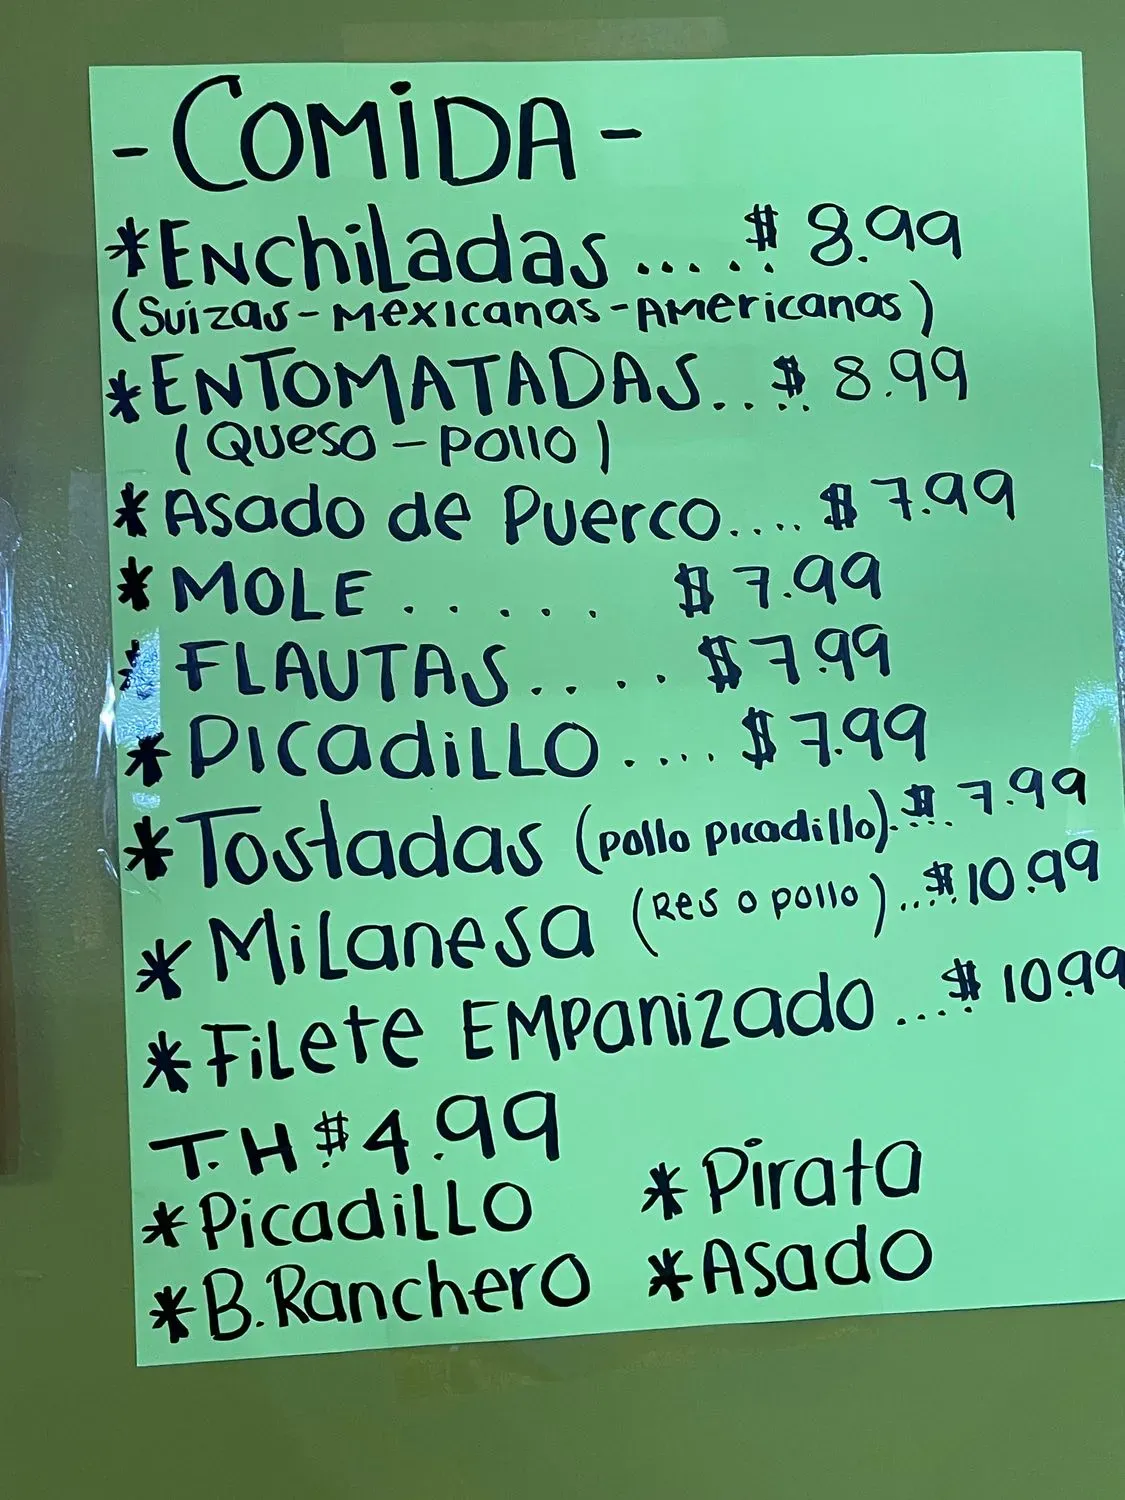 - COMIDA -
*Enchiladas ..... $ 8.99
(Suizas - Mexicanas - Americanas)
*ENTOMATADAS.... $ 8.99
(Queso - Pollo)
*Asado de Puerco.... $ 7.99
*MOLE ..... $ 7.99
*FLAUTAS.... $7.99
*PICadiLLO .... $7.99
*Tostadas (pollo picadillo)... $ 7.99
*Milanesa (Res o pollo)... $10.99
*Filete EMPanizado .... $ 10.99
T.H $4.99
*PicadiLLO *Pirata
*B.Ranchero *Asado